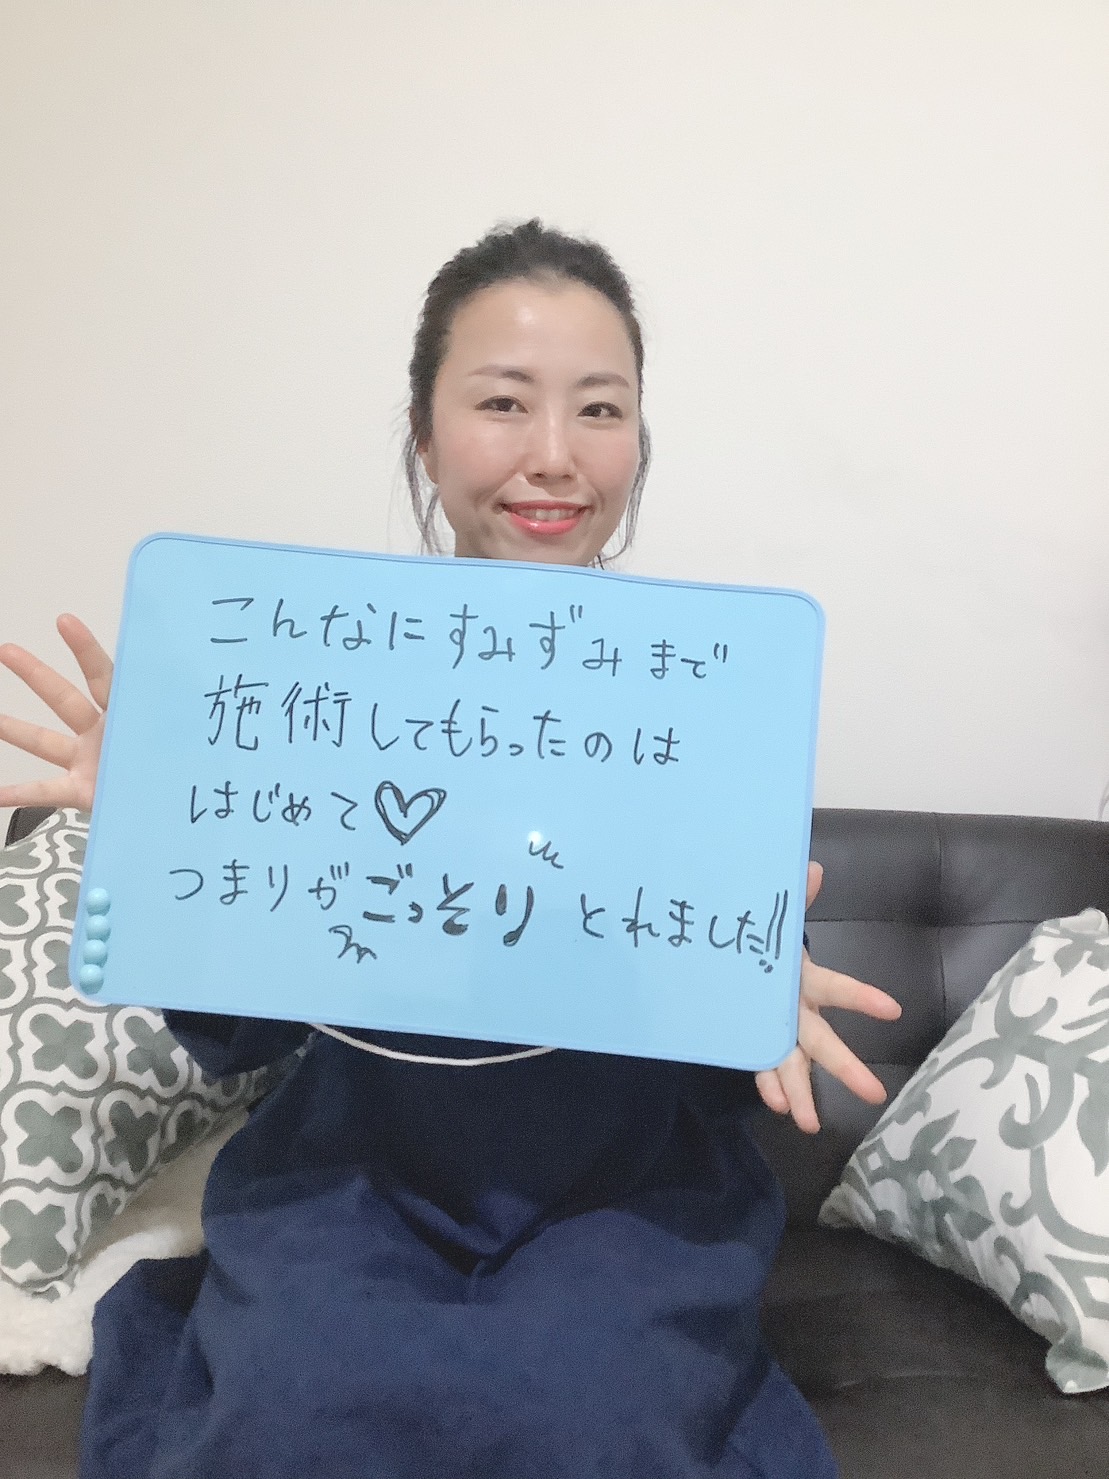 こんなにすみずみまで
施術してもらったのは
はじめて♡
つまりがごっそりとれました!!